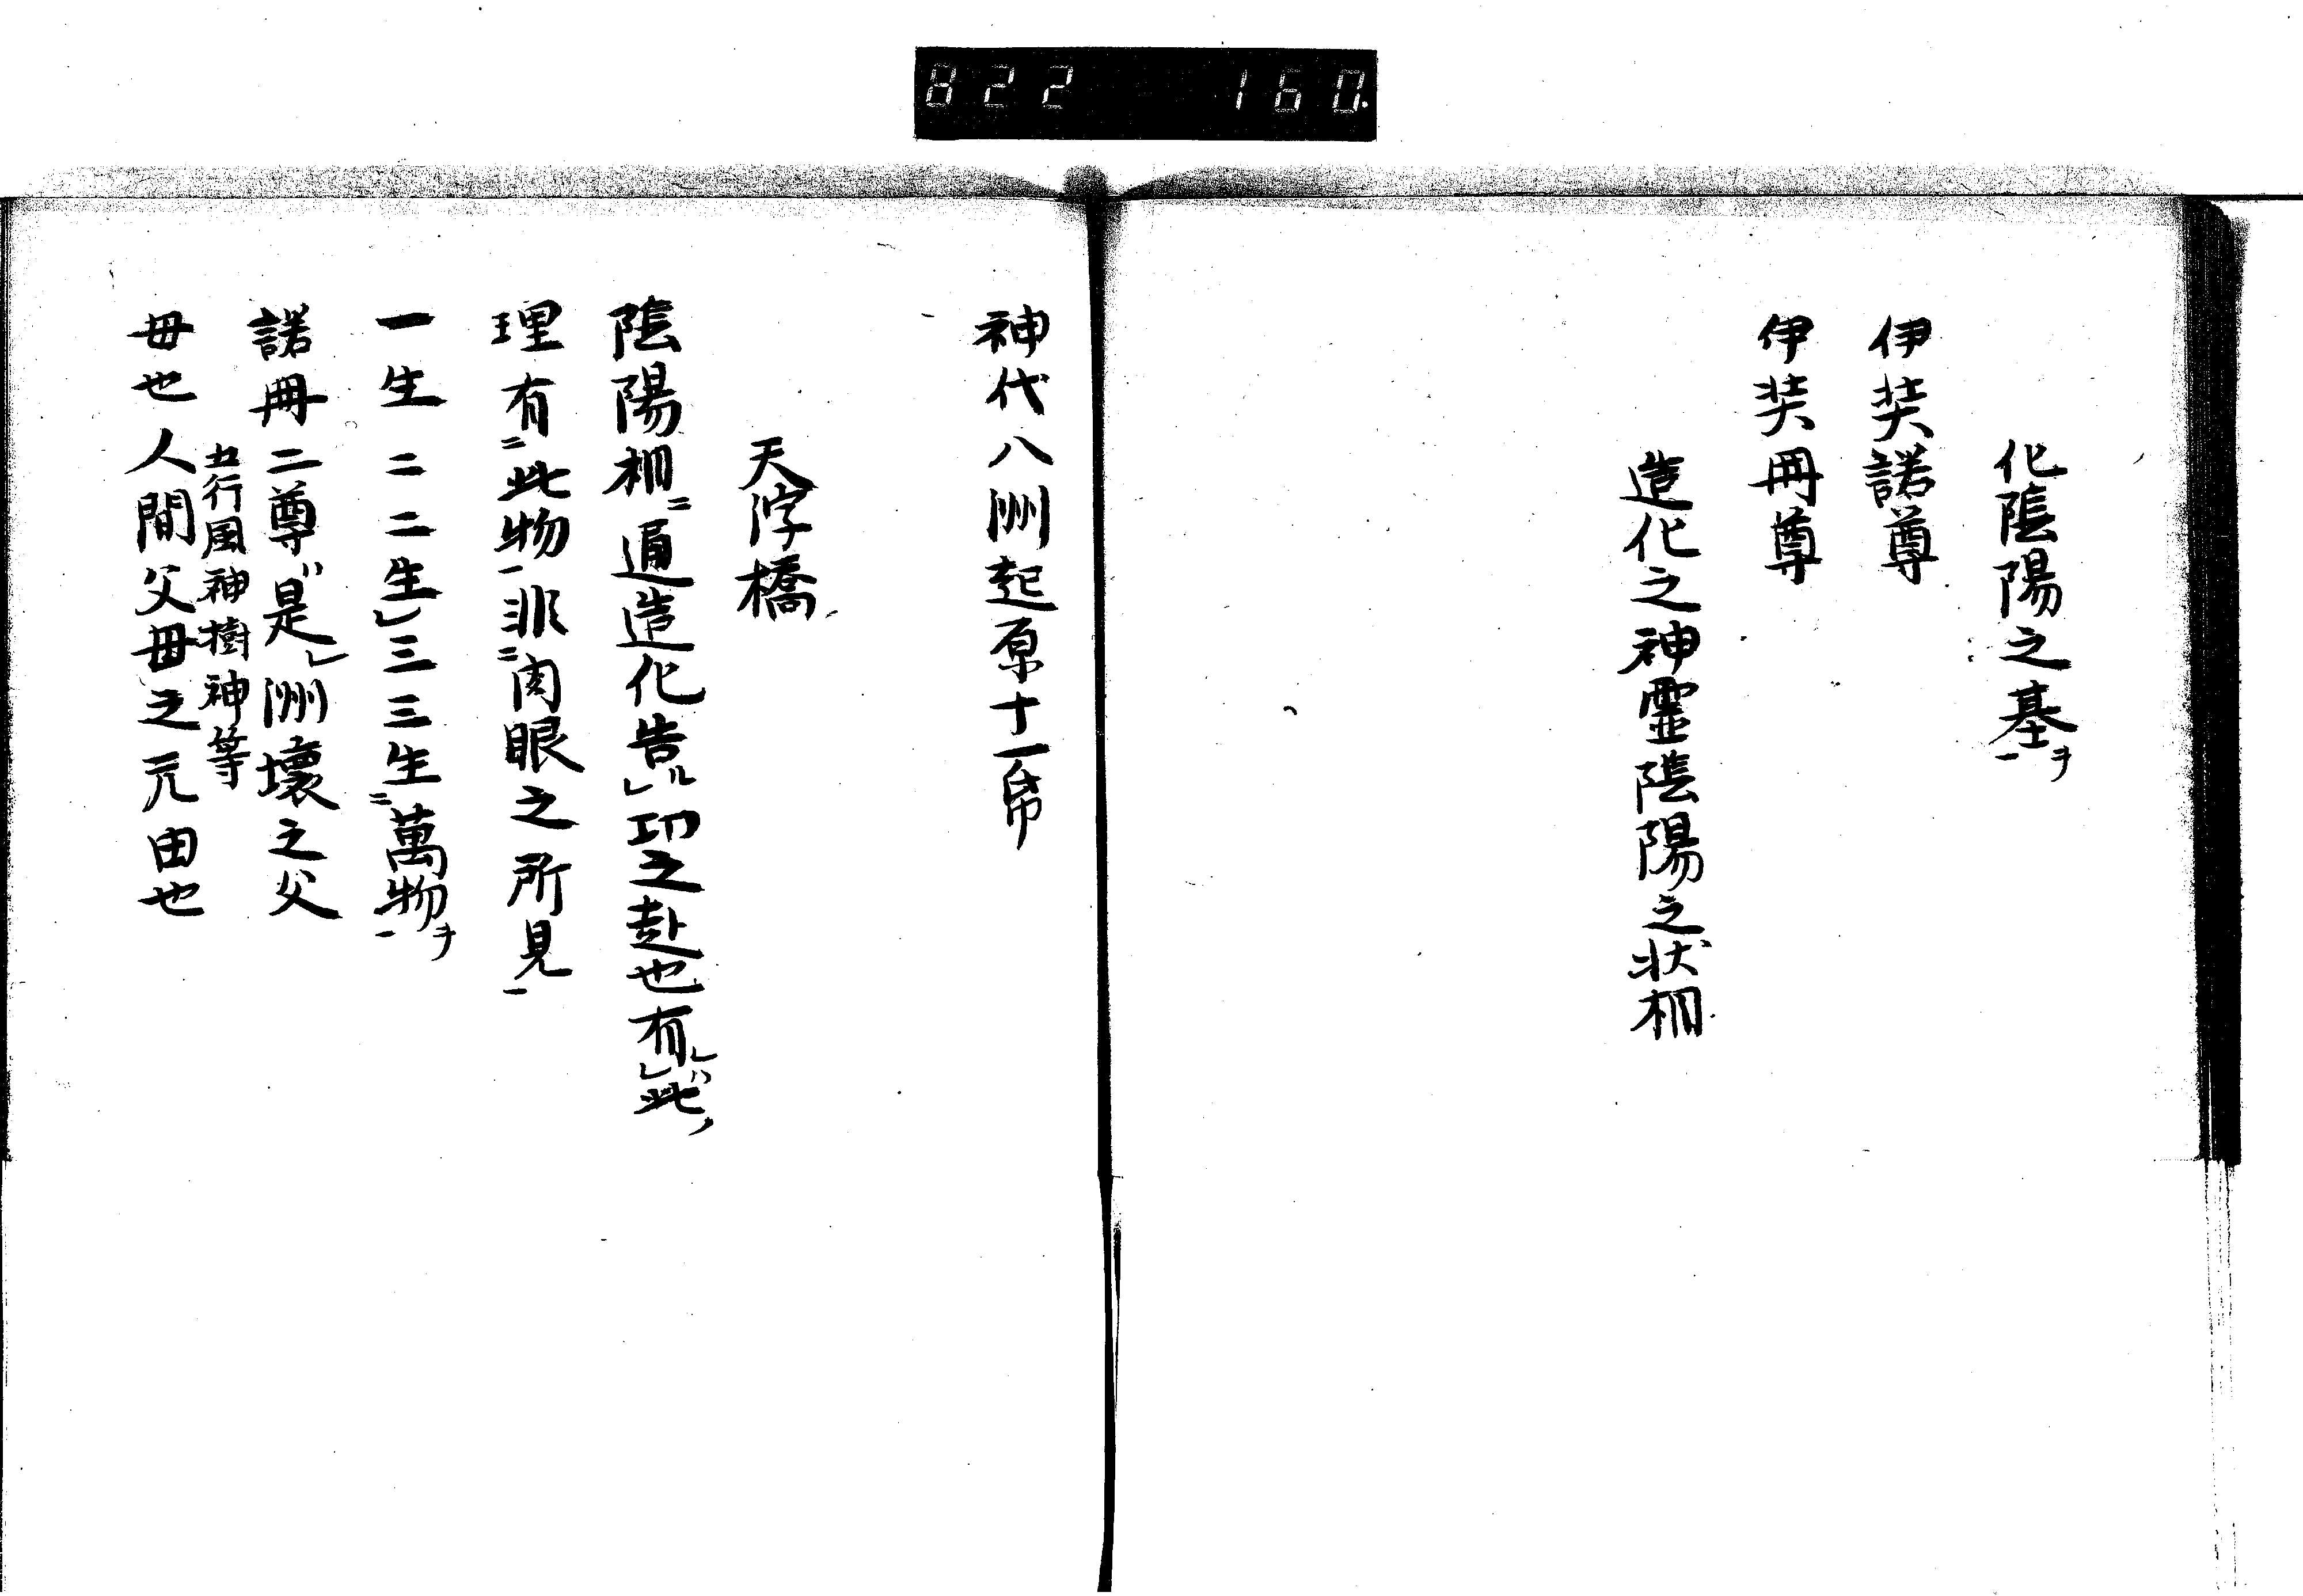 822 160.
化陰陽之基ヲ一
伊弉諾尊
伊弉冊尊
造化之神霊陰陽之状相
神代八洲起原十一
天浮橋
陰陽相ニ通造化告ルレ功之赴也有レハレ此ノ
理有ニ此物一非ニ肉眼之所見一
一生二二生レ三三生ニ萬物ヲ一
諾冊二尊ハ是レ洲壌之父
五行風神樹神等
毋也人間父毋之元由也